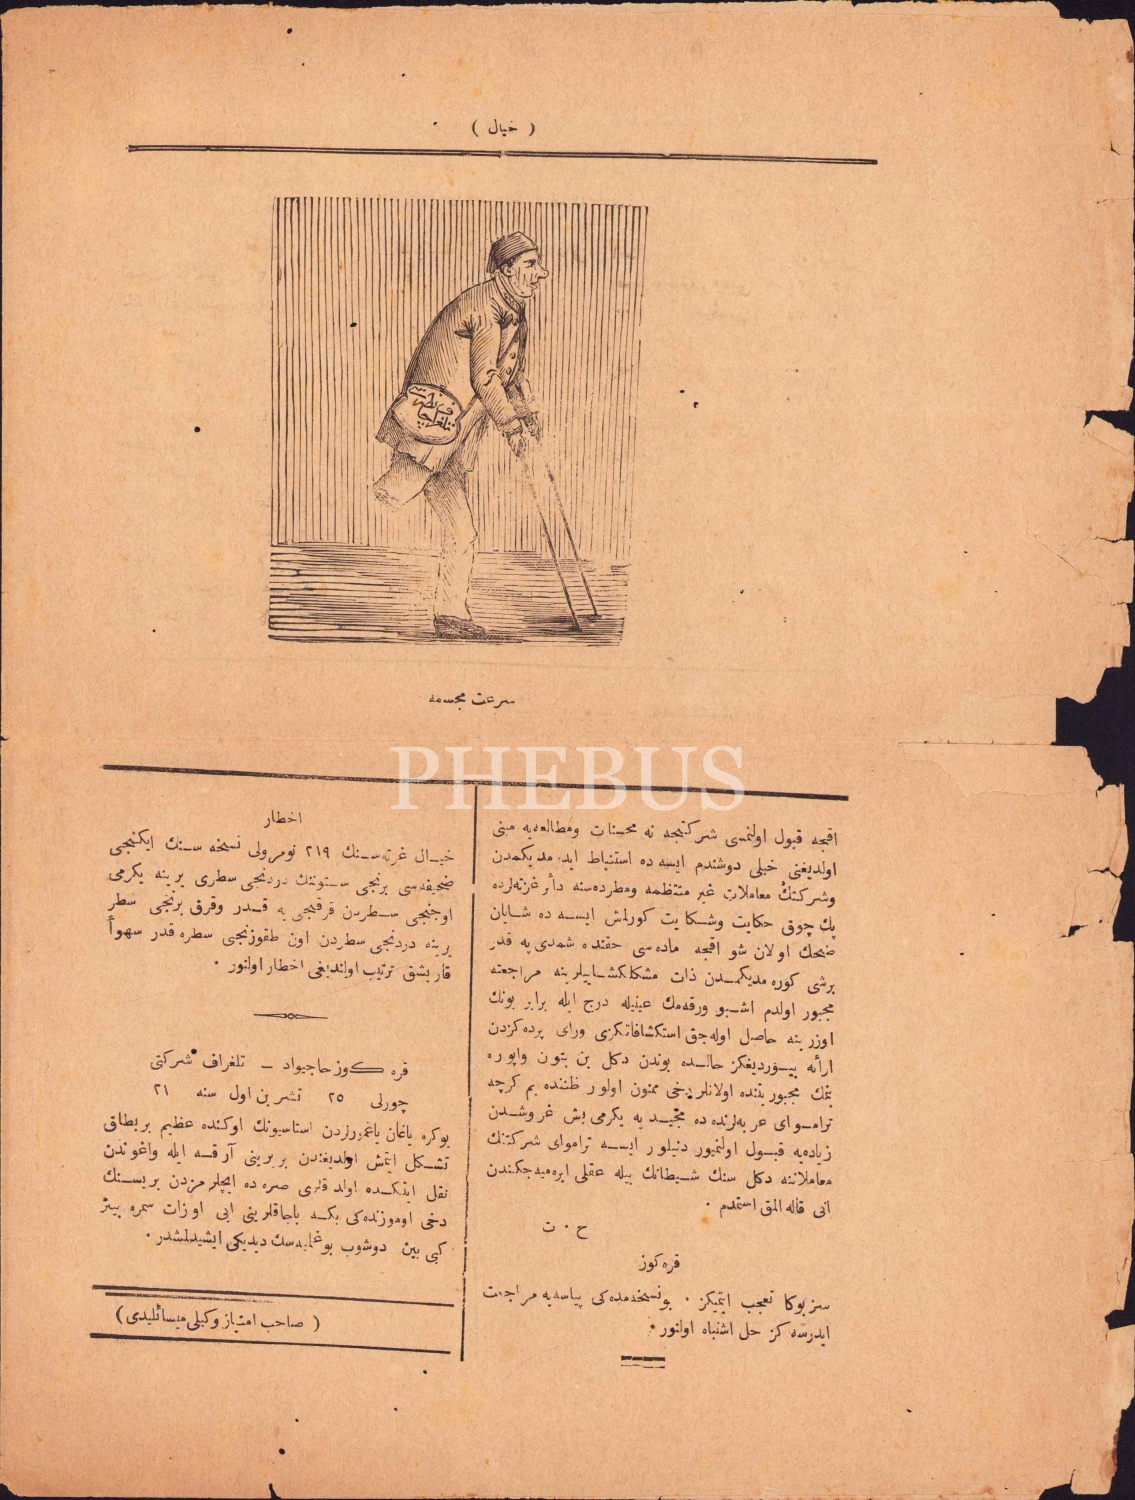 ( خيال )
سرعت مجسمه
PHEBUS
اقچه قبول اولنمسى شركتجه نه محسنات ومطالعه‌يه مبنى
اولديغنى خيلى دوشندم ايسه ده استنباط ايده مديكمدن
وشركتك معاملات غير منتظمه ومطرده‌سنه دائر غزته‌لرده
پك چوق حكايت وشكايت كورلمش ايسه ده شايان
ضحك اولان شو اقچه ماده سى حقنده شمدى يه قدر
برشى كوره مديكمدن ذات مشكلكشاييلرينه مراجعته
مجبور اولدم اشبو ورقه‌مك عينيله درج ايله برابر بونك
اوزرينه حاصل اوله‌جق استكشافاتكزى وراى پرده‌كزدن
ارائه بيورديغكز حالده بوندن دكل بن بتون واپوره
بنمك مجبوريتنده اولانلر دخى ممنون اولور ظننده يم كرچه
تراموای عربه‌لرنده ده مجيديه يكرمى بش غروشدن
زياده‌يه قبول اولنميور دنيلور ايسه تراموای شركتنك
معاملاتنه دكل سنك شيطانك بيله عقلى ايره‌ميه‌جكندن
آنى قاله المق استمدم .
ح . ت
قره كوز
سز بوكا تعجب ايتميكز . بو نسخه‌مده‌كى پياسه‌يه مراجعت
ايدرسه كز حل اشتباه اولنور .
اخطار
خيال غزته‌سنك ٢١٩ نومرولى نسخه سنك ايكنجى
صحيفه‌سى برنجى ستوننك دردنجى سطرى يرينه يكرمى
اوچنجى سطردن قرقنجى يه قدر وقرق برنجى سطر
يرينه دردنجى سطردن اون طقوزنجى سطره قدر سهواً
قاريشق ترتيب اولنديغى اخطار اولنور .
قره كوز حاجيواد ــ تلغراف شركتى
چورلى ٢٥ تشرين اول سنه ٢١
بوكره ياغان ياغمورلردن استاسيونك اوكنده عظيم بر بطاق
تشكل ايتمش اولديغندن بر برينى آرقه ايله واغوندن
نقل ايتكده اولدقلرى صره ده ايچلرمزدن بريسنك
دخى اوموزنده‌كى بكه باجاقلرينى ايى اوزات سمره بينر
كبى بين دوشوب بوغلميه‌سك ديديكى ايشيدلمشدر .
( صاحب امتياز وكيلى ميسائليدى )